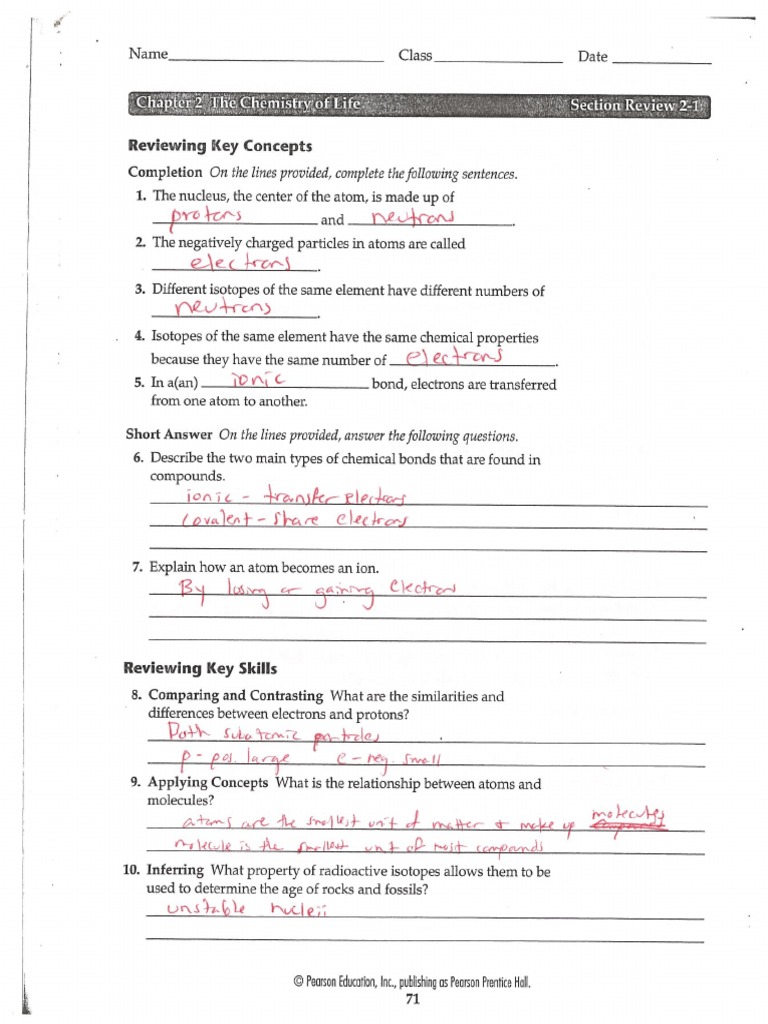 Name Class Date
Chapter 2 The Chemistry of Life Section Review 2-1
Reviewing Key Concepts
Completion On the lines provided, complete the following sentences.
1. The nucleus, the center of the atom, is made up of
protons and neutrons.
2. The negatively charged particles in atoms are called
electrons.
3. Different isotopes of the same element have different numbers of
neutrons.
4. Isotopes of the same element have the same chemical properties
because they have the same number of electrons.
5. In a(an) ionic bond, electrons are transferred
from one atom to another.
Short Answer On the lines provided, answer the following questions.
6. Describe the two main types of chemical bonds that are found in
compounds.
ionic - transfer electrons
covalent - share electrons
7. Explain how an atom becomes an ion.
By losing or gaining electrons
Reviewing Key Skills
8. Comparing and Contrasting What are the similarities and
differences between electrons and protons?
Both subatomic particles
p - pos. large e - neg. small
9. Applying Concepts What is the relationship between atoms and
molecules?
atoms are the smallest unit of matter + make up molecules
molecule is the smallest unit of most compounds
10. Inferring What property of radioactive isotopes allows them to be
used to determine the age of rocks and fossils?
unstable nucleii
© Pearson Education, Inc., publishing as Pearson Prentice Hall.
71